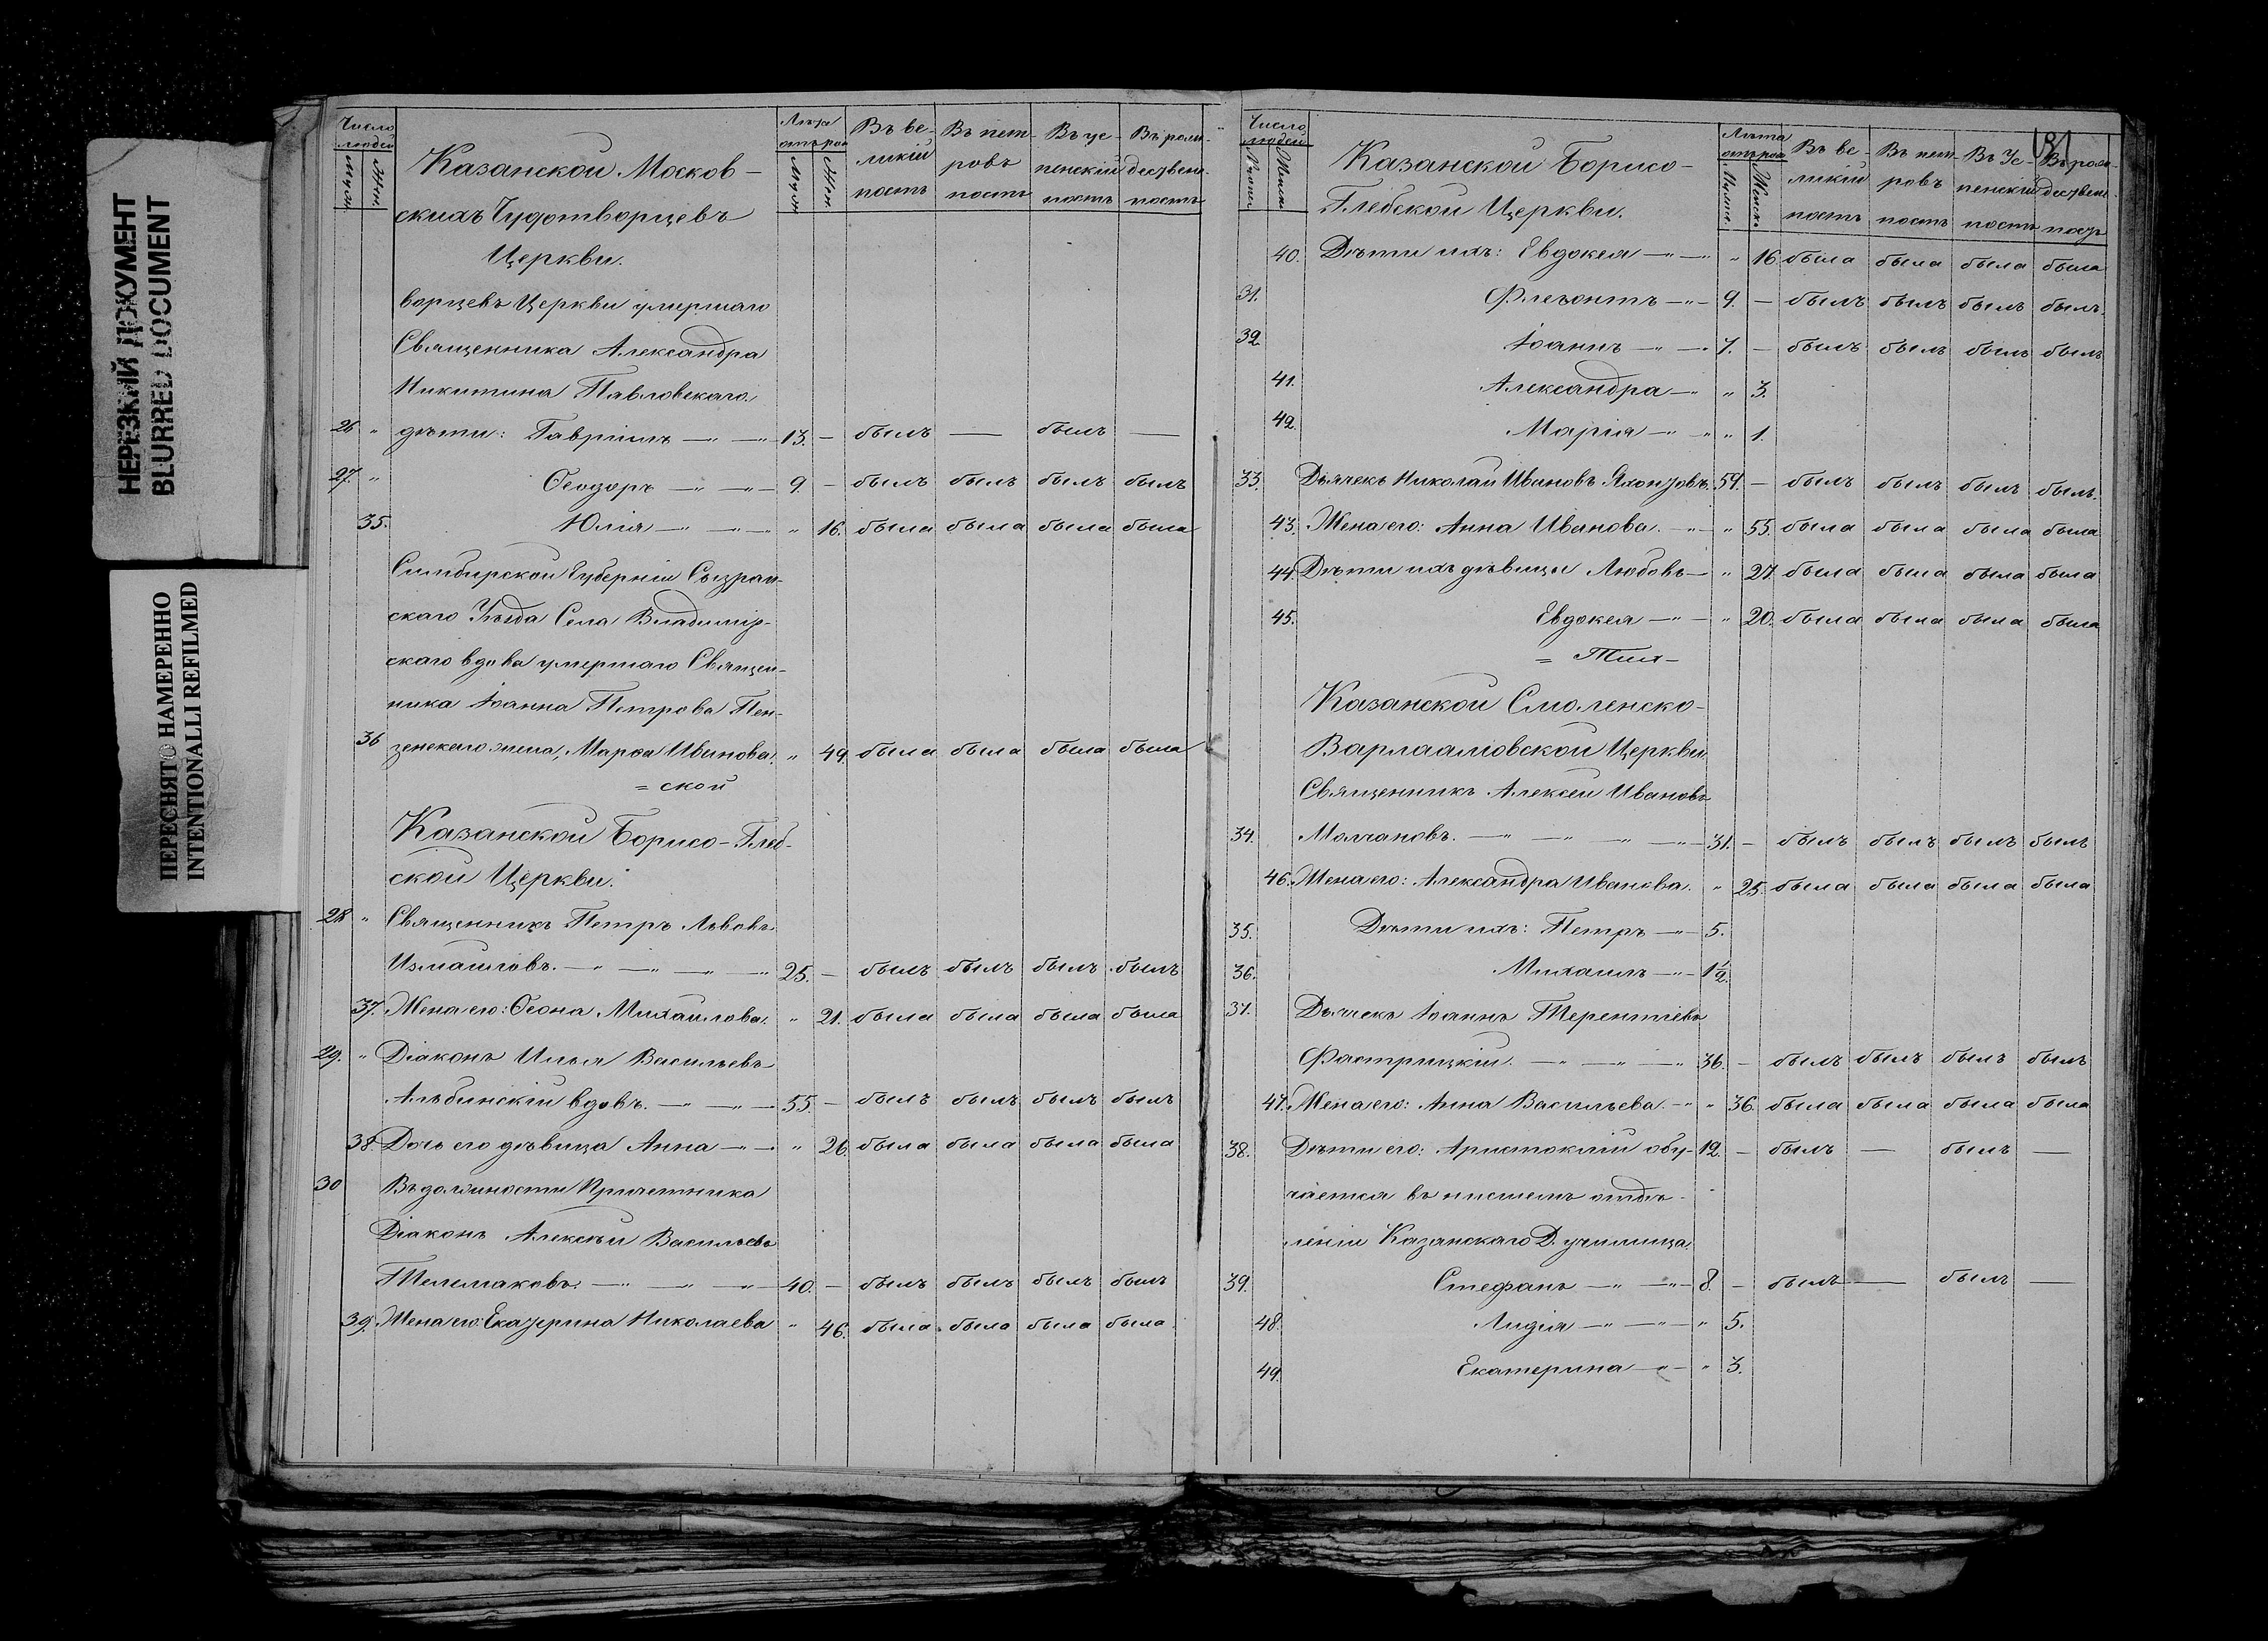 НЕРЕЗКИЙ ДОКУМЕНТ
BLURRED DOCUMENT
ПЕРЕСНЯТО НАМЕРЕННО
INTENTIONALLI REFILMED
Число людей Муж. Жен. Казанской Москов- Лѣта отъ род. Муж. Жен. Въ ве- ликій постъ Въ пет- ровъ постъ Въ ус- пенскій постъ Въ рож- дествен. постъ
скихъ Чудотворцевъ
Церкви.
ворцевъ Церкви умершаго
Священника Александра
Никитина Павловскаго
26 " дѣти: Гавріилъ — " — " — 13. — былъ — былъ —
27. " Ѳеодоръ — " — " — 9. — былъ былъ былъ былъ
35. Юлія — " — " — " 16. была была была была
Симбирской Губерніи Сызран-
скаго Уѣзда Села Владимір-
скаго вдова умершаго Священ-
ника Іоанна Петрова Пен-
36 зенскаго жена, Марѳа Иванова. " 49. была была была была
= ской
Казанской Борисо-Глеб-
ской Церкви.
28 " Священникъ Петръ Львовъ
Измаиловъ. — " — " — " — " 25. — былъ былъ былъ былъ
37. Жена его: Ѳеона Михайлова. " 21. была была была была
29. " Діаконъ Илья Васильевъ
Альбинскій вдовъ. — " — " — 55. — былъ былъ былъ былъ
38. Дочь его дѣвица Анна — " — " 26. была была была была
30 Въ должности Причетника
Діаконъ Алексѣй Васильевъ
Телемаковъ. — " — " — " — 40. — былъ былъ былъ былъ
39. Жена его: Екатерина Николаева " 46. была была была была
181
Число людей Казанской Борисо- Лѣта отъ род. Въ ве- ликій постъ Въ пет- ровъ постъ Въ Ус- пенскій постъ Въ рож- дествен. постъ
Глебской Церкви.
40. Дѣти ихъ: Евдокея — " — " 16 была была была была
31. Флегонтъ — " — 9. — былъ былъ былъ былъ.
32 Іоаннъ — " — 7. — былъ былъ былъ былъ
41. Александра — " " 3.
42. Марія — " — " " 1.
33. Дьячекъ Николай Ивановъ Яхонтовъ. 59. — былъ былъ былъ былъ.
43. Жена его: Анна Иванова. — " — " 55. была была была была
44. Дѣти ихъ дѣвицы Любовь — " 27 была была была была
45. Евдокея — " — " 20. была была была была
= Тих-
Казанской Смоленско-
Варлаамовской Церкви
Священникъ Алексей Ивановъ
34. Молчановъ. — " — " — " — " — 31. — былъ былъ былъ былъ
46. Жена его: Александра Иванова. " 25. была была была была
35. Дѣти ихъ: Петръ — " — 5.
36. Михаилъ — " — 1½.
37. Дьячекъ Іоаннъ Терентіевъ
Фастрицкій. — " — " — " 36. — былъ былъ былъ былъ
47. Жена его: Анна Васильева. — " " 36. была была была была
38. Дѣти его: Аристоклій обу- 12. — былъ — былъ —
чается въ нисшемъ отдѣ-
леніи Казанскаго Д. училища.
39. Стефанъ — " — " — 8. — былъ — былъ —
48. Лидія — " — " — " 5.
49. Екатерина — " — " 3.